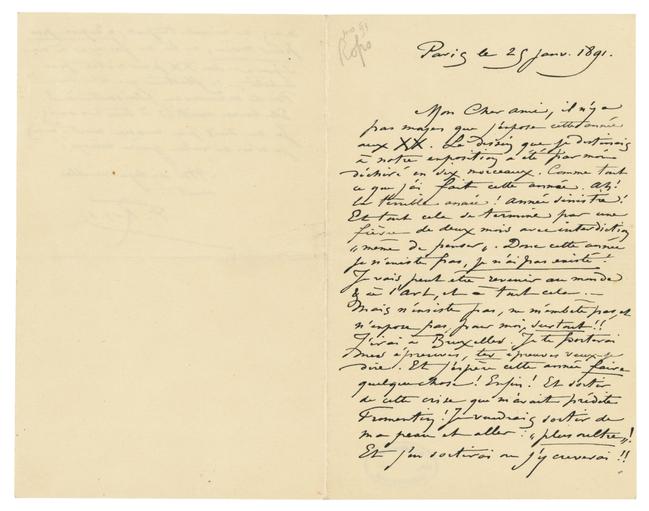 no 93
Rops
Paris le 25 janv. 1891.
Mon Cher ami, il n'y a
pas moyen que j'expose cette année
aux XX. Le dessin que je destinais
à notre exposition a été par moi
déchiré en dix morceaux. Comme tout
ce que j'ai fait cette année. Ah!
la terrible année! Année sinistre!
Et tout cela se termine par une
fièvre de deux mois avec interdiction
"même de penser". Donc cette année
je n'existe pas, je n'ai pas existé!
Je vais peut être revenir au monde
& à l'Art, et à tout cela. —
Mais n'insiste pas, ne m'embête pas, et
n'expose pas, pour moi, surtout!!
J'irai à Bruxelles. Je te porterai
mes épreuves, tes épreuves veux-je
dire. Et j'espère cette année faire
quelque chose! Enfin! Et sortir
de cette crise que m'avait prédite
Fromentin! Je voudrais sortir de
ma peau et aller: "plus oultre"!
Et j'en sortirai ou j'y creverai!!